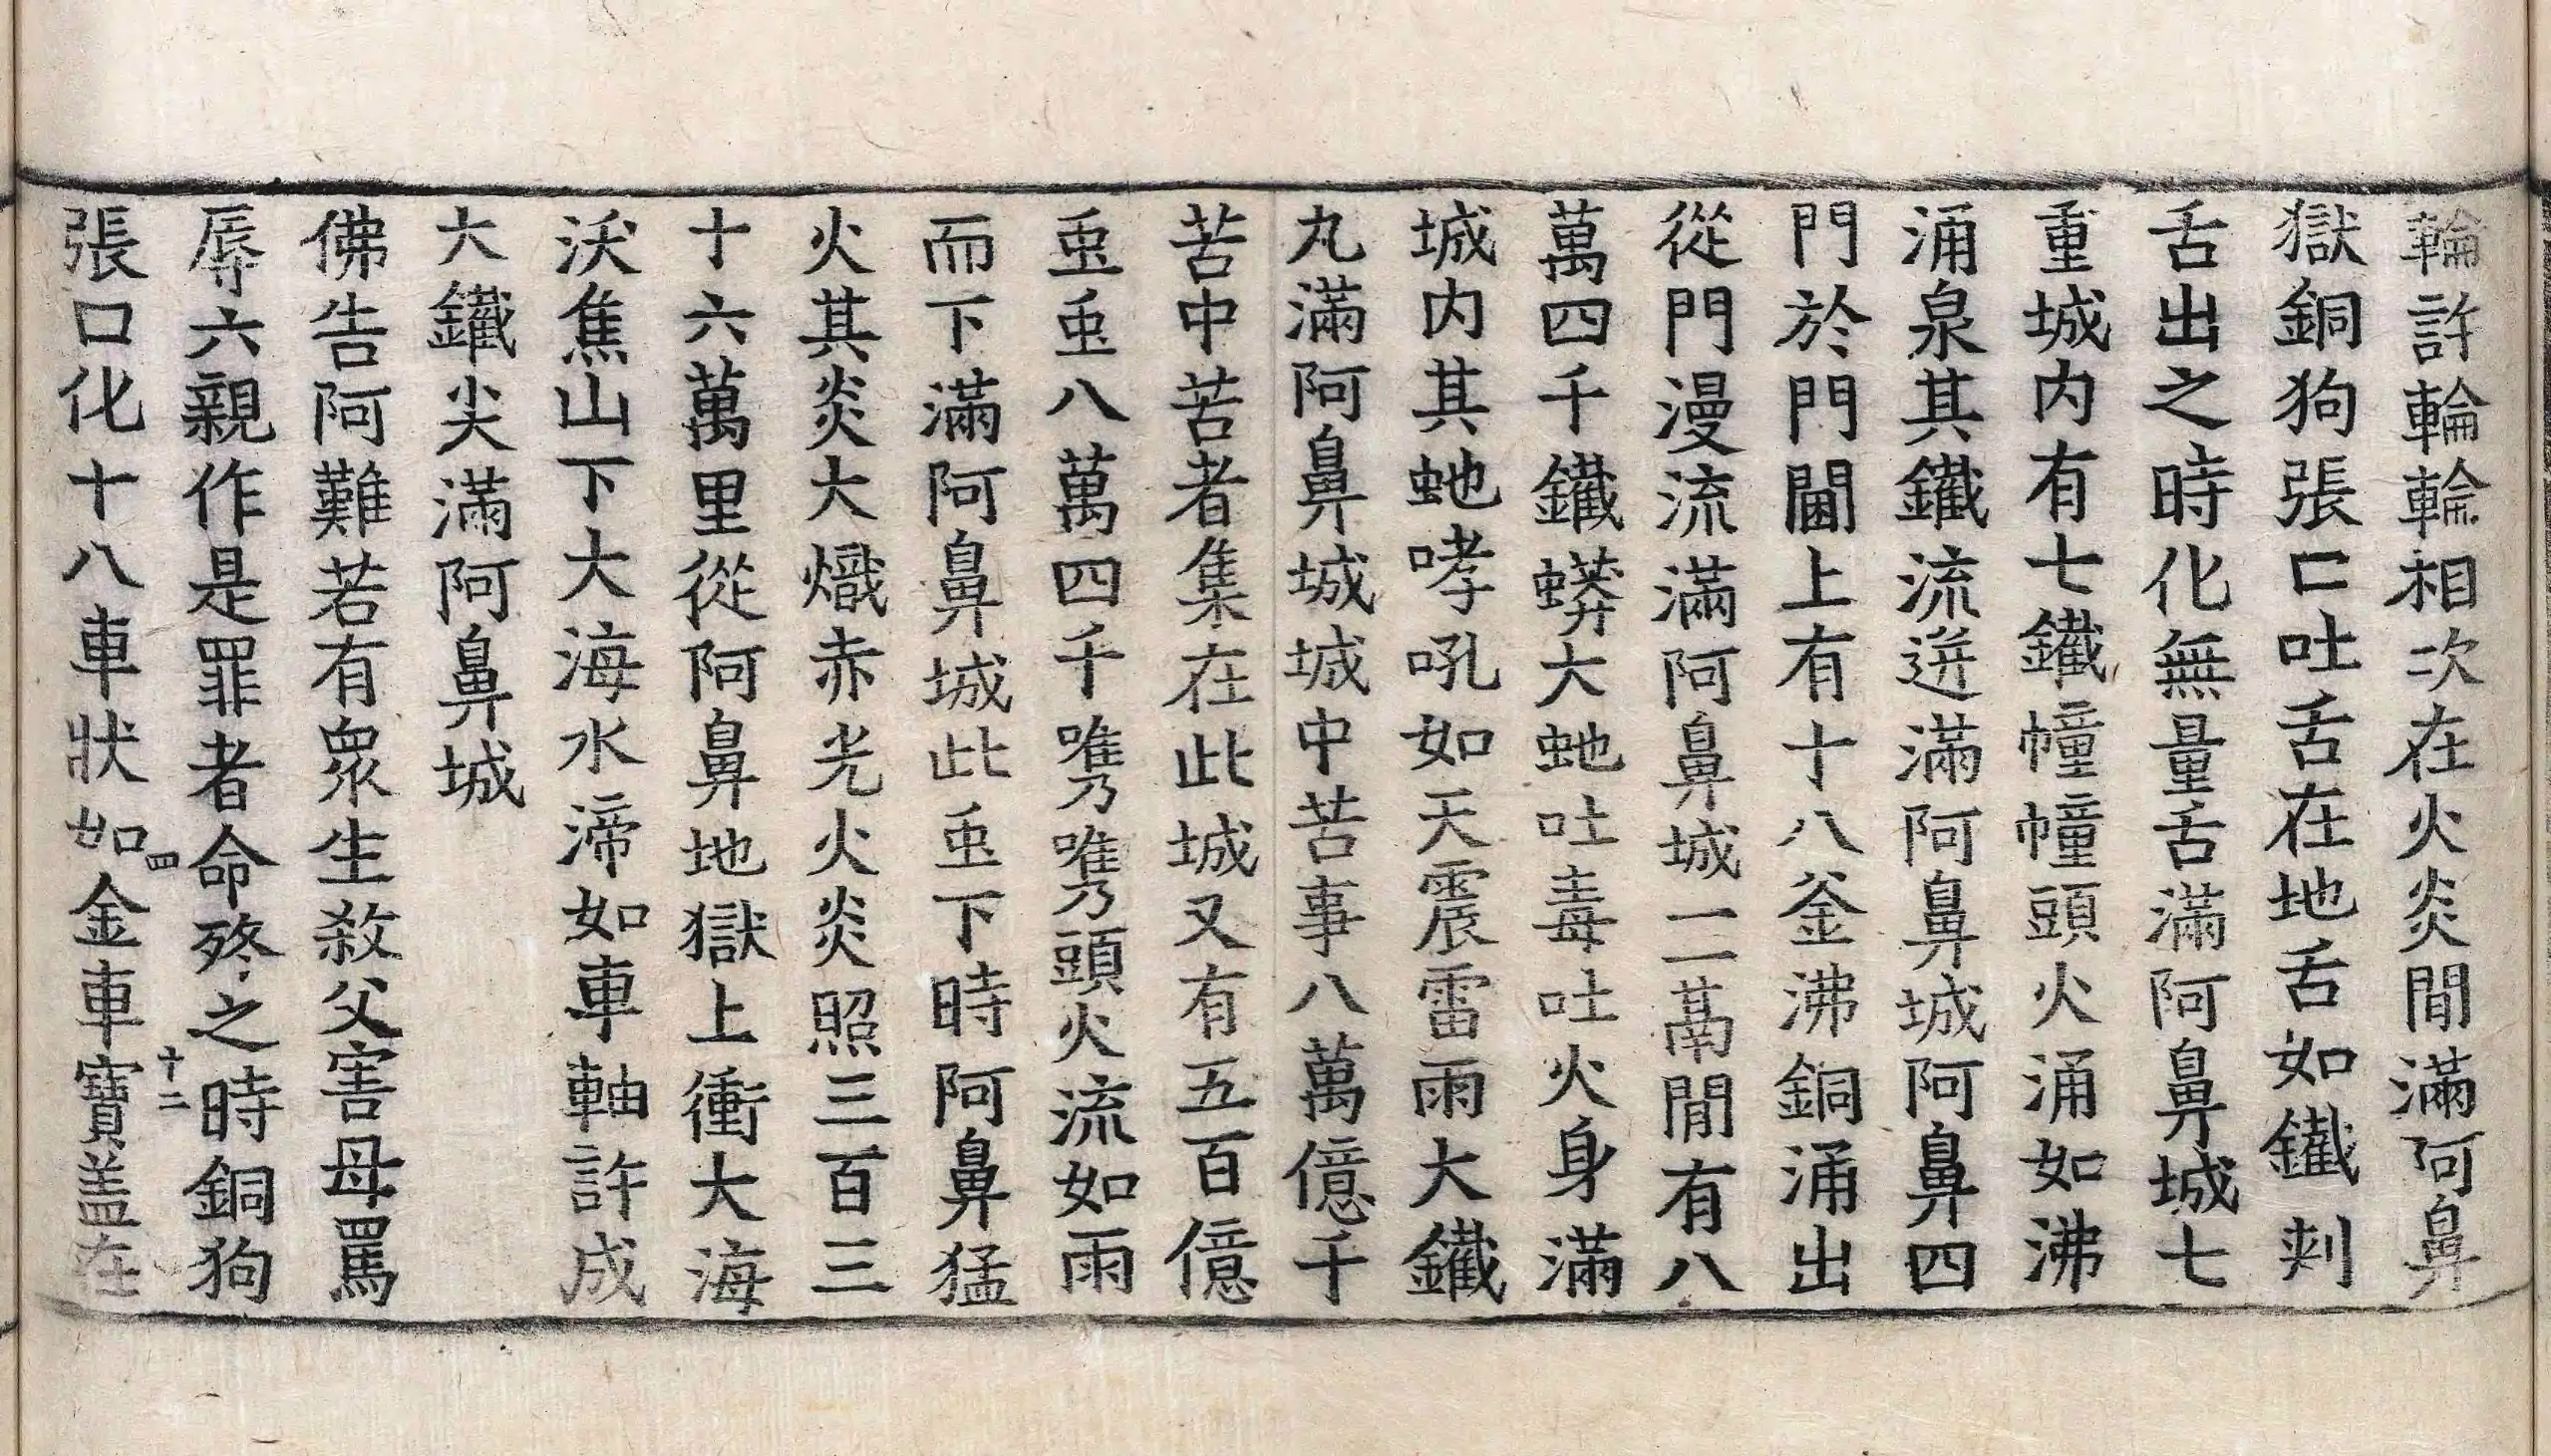 輪許輪輪相次在火炎間滿阿鼻
獄銅狗張口吐舌在地舌如鐵刾
舌出之時化無量舌滿阿鼻城七
重城内有七鐵幢幢頭火涌如沸
涌泉其鐵流迸滿阿鼻城阿鼻四
門於門閫上有十八釜沸銅涌出
從門漫流滿阿鼻城一一鬲閒有八
萬四千鐵蟒大虵吐毒吐火身滿
城内其虵哮吼如天震雷雨大鐵
丸滿阿鼻城城中苦事八萬億千
苦中苦者集在此城又有五百億
䖝䖝八萬四千㗲㗲頭火流如雨
而下滿阿鼻城此䖝下時阿鼻猛
火其炎大熾赤光火炎照三百三
十六萬里從阿鼻地獄上衝大海
沃焦山下大海水渧如車軸許成
大鐵尖滿阿鼻城
佛告阿難若有衆生殺父害母罵
辱六親作是罪者命終之時銅狗
四 十二
張口化十八車狀如金車寶盖在